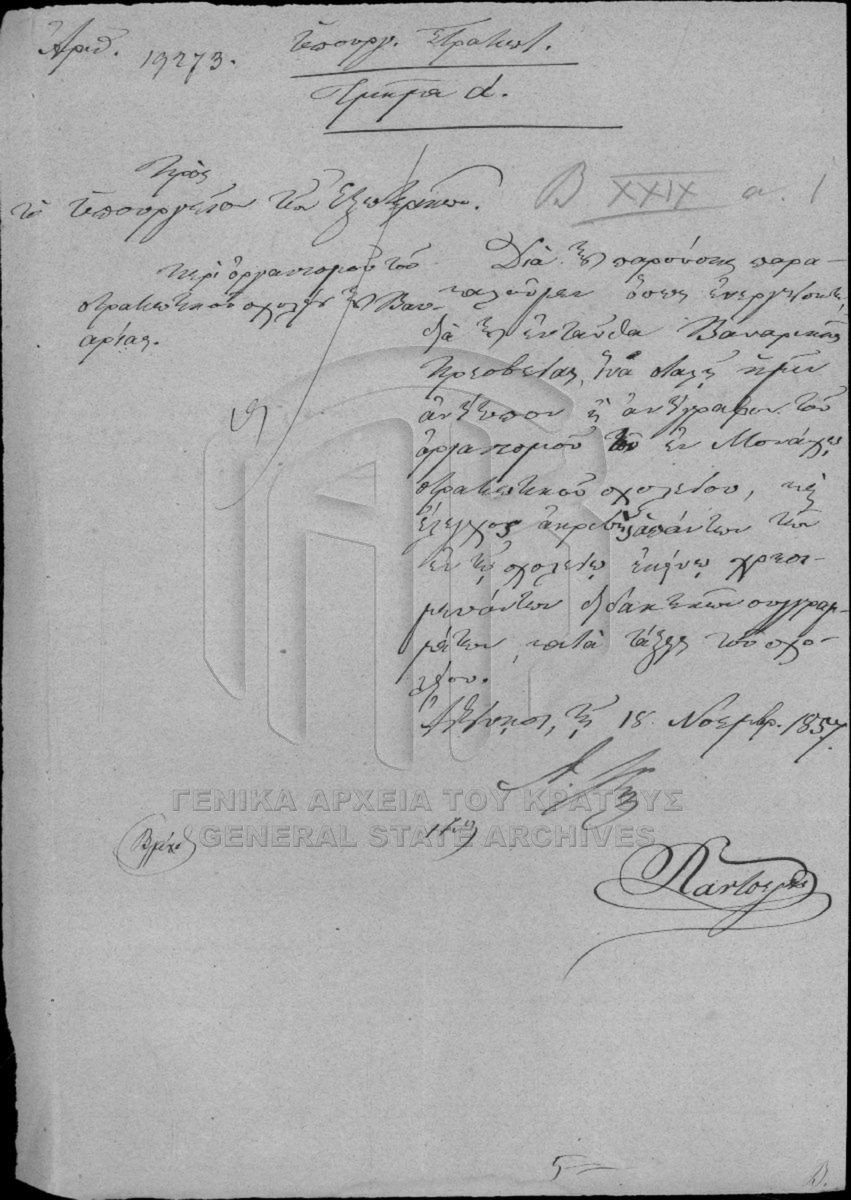 Ἀριθ. 19273.
Ὑπουργ. Στρατιωτ.
Τμῆμα α.
B XXIX a. 1
Πρὸς
τὸ Ὑπουργεῖον τῶν Ἐξωτερικῶν.
Περὶ ὀργανισμοῦ τοῦ
στρατιωτικοῦ σχολείου τῆς Βαυ-
αρίας.
Διὰ τῆς παρούσης παρα-
καλοῦμεν ὅπως ἐνεργήσητε,
διὰ τῆς ἐνταῦθα Βαυαρικῆς
Πρεσβείας, ἵνα σταλῇ ἡμῖν
ἀντίτυπον ἢ ἀντίγραφον τοῦ
ὀργανισμοῦ τοῦ ἐν Μονάχῳ
στρατιωτικοῦ σχολείου, καὶ
ἔλεγχος ἀκριβὴς ἁπάντων τῶν
ἐν τῷ σχολείῳ ἐκείνῳ χρησι-
μευόντων διδακτικῶν συγγραμ-
μάτων, κατὰ τάξεις τοῦ σχο-
λείου.
Ἀθήνησι, τῇ 18 Νοεμβρ. 1857.
ΓΕΝΙΚΑ ΑΡΧΕΙΑ ΤΟΥ ΚΡΑΤΟΥΣ
GENERAL STATE ARCHIVES